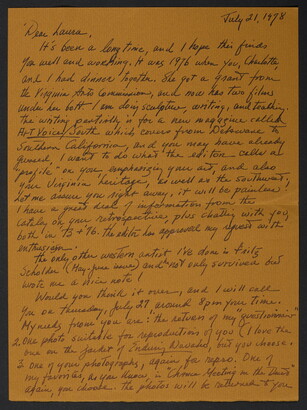 July 21, 1978
Dear Laura,
It's been a long time, and I hope this finds
you well and working. It was 1976 when you, Charlotte
and I had dinner together. She got a grant from
the Virginia Arts Commission, and now has two films
under her belt. I am doing sculpture, writing, and teaching.
The writing partially is for a new magazine called
Art Voices/South which covers from Delaware to
Southern California, and you may have already
guessed, I want to do what the editor calls a
"profile" on you, emphasizing your art, and also
your Virginia heritage, as well as the southwest.
Let me assure you right away, it will be painless.
I have a great deal of information from the
catalog on your retrospective, plus chatting with you
both in '75 + '76. The editor has approval my
enthusiasm.
The only other western artist I've done is Fritz
Scholder (May-June issue) and not only survived but
wrote me a nice note!
Would you think it over, and I will call
you on Thursday, July 27 around 8pm your time.
My needs from you are: 1. the return of my "questionnaire"
2. One photo suitable for reproductions of you (I love the
one on the jacket of Enduring Navaho, but you choose.
3. one of your photographs, again for repro. One of
my favorites, as you know, is "Chosen Meeting on the Dunes"
again, you choose. The photos will be returned to you